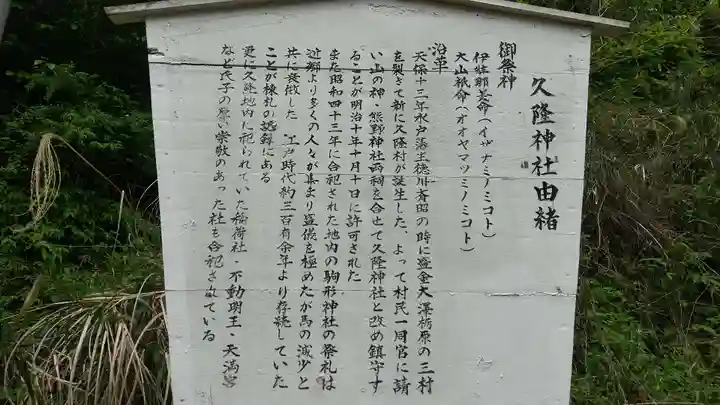 久隆神社由緒
御祭神
伊弉那美命(イザナミノミコト)
大山祇命(オオヤマツミノミコト)
沿革
天保十三年水戸藩主徳川斉昭の時に盗金大澤栃原の三村
を裂きて新に久隆村が誕生した よって村民一同官に請
い山の神・熊野神社両祠を合せて久隆神社と改め鎮守す
ることが明治十年十月十日に許可された
また昭和四十三年に合祀された地内の駒形神社の祭礼は
近郷より多くの人々が集まり盛儀を極めたが馬の減少と
共に衰微した 江戸時代約三百有余年より存続していた
ことが棟札の認録にある
更に久隆地内に祀られていた稲荷社・不動明王・天満宮
など氏子の篤い崇敬のあった社も合祀されている